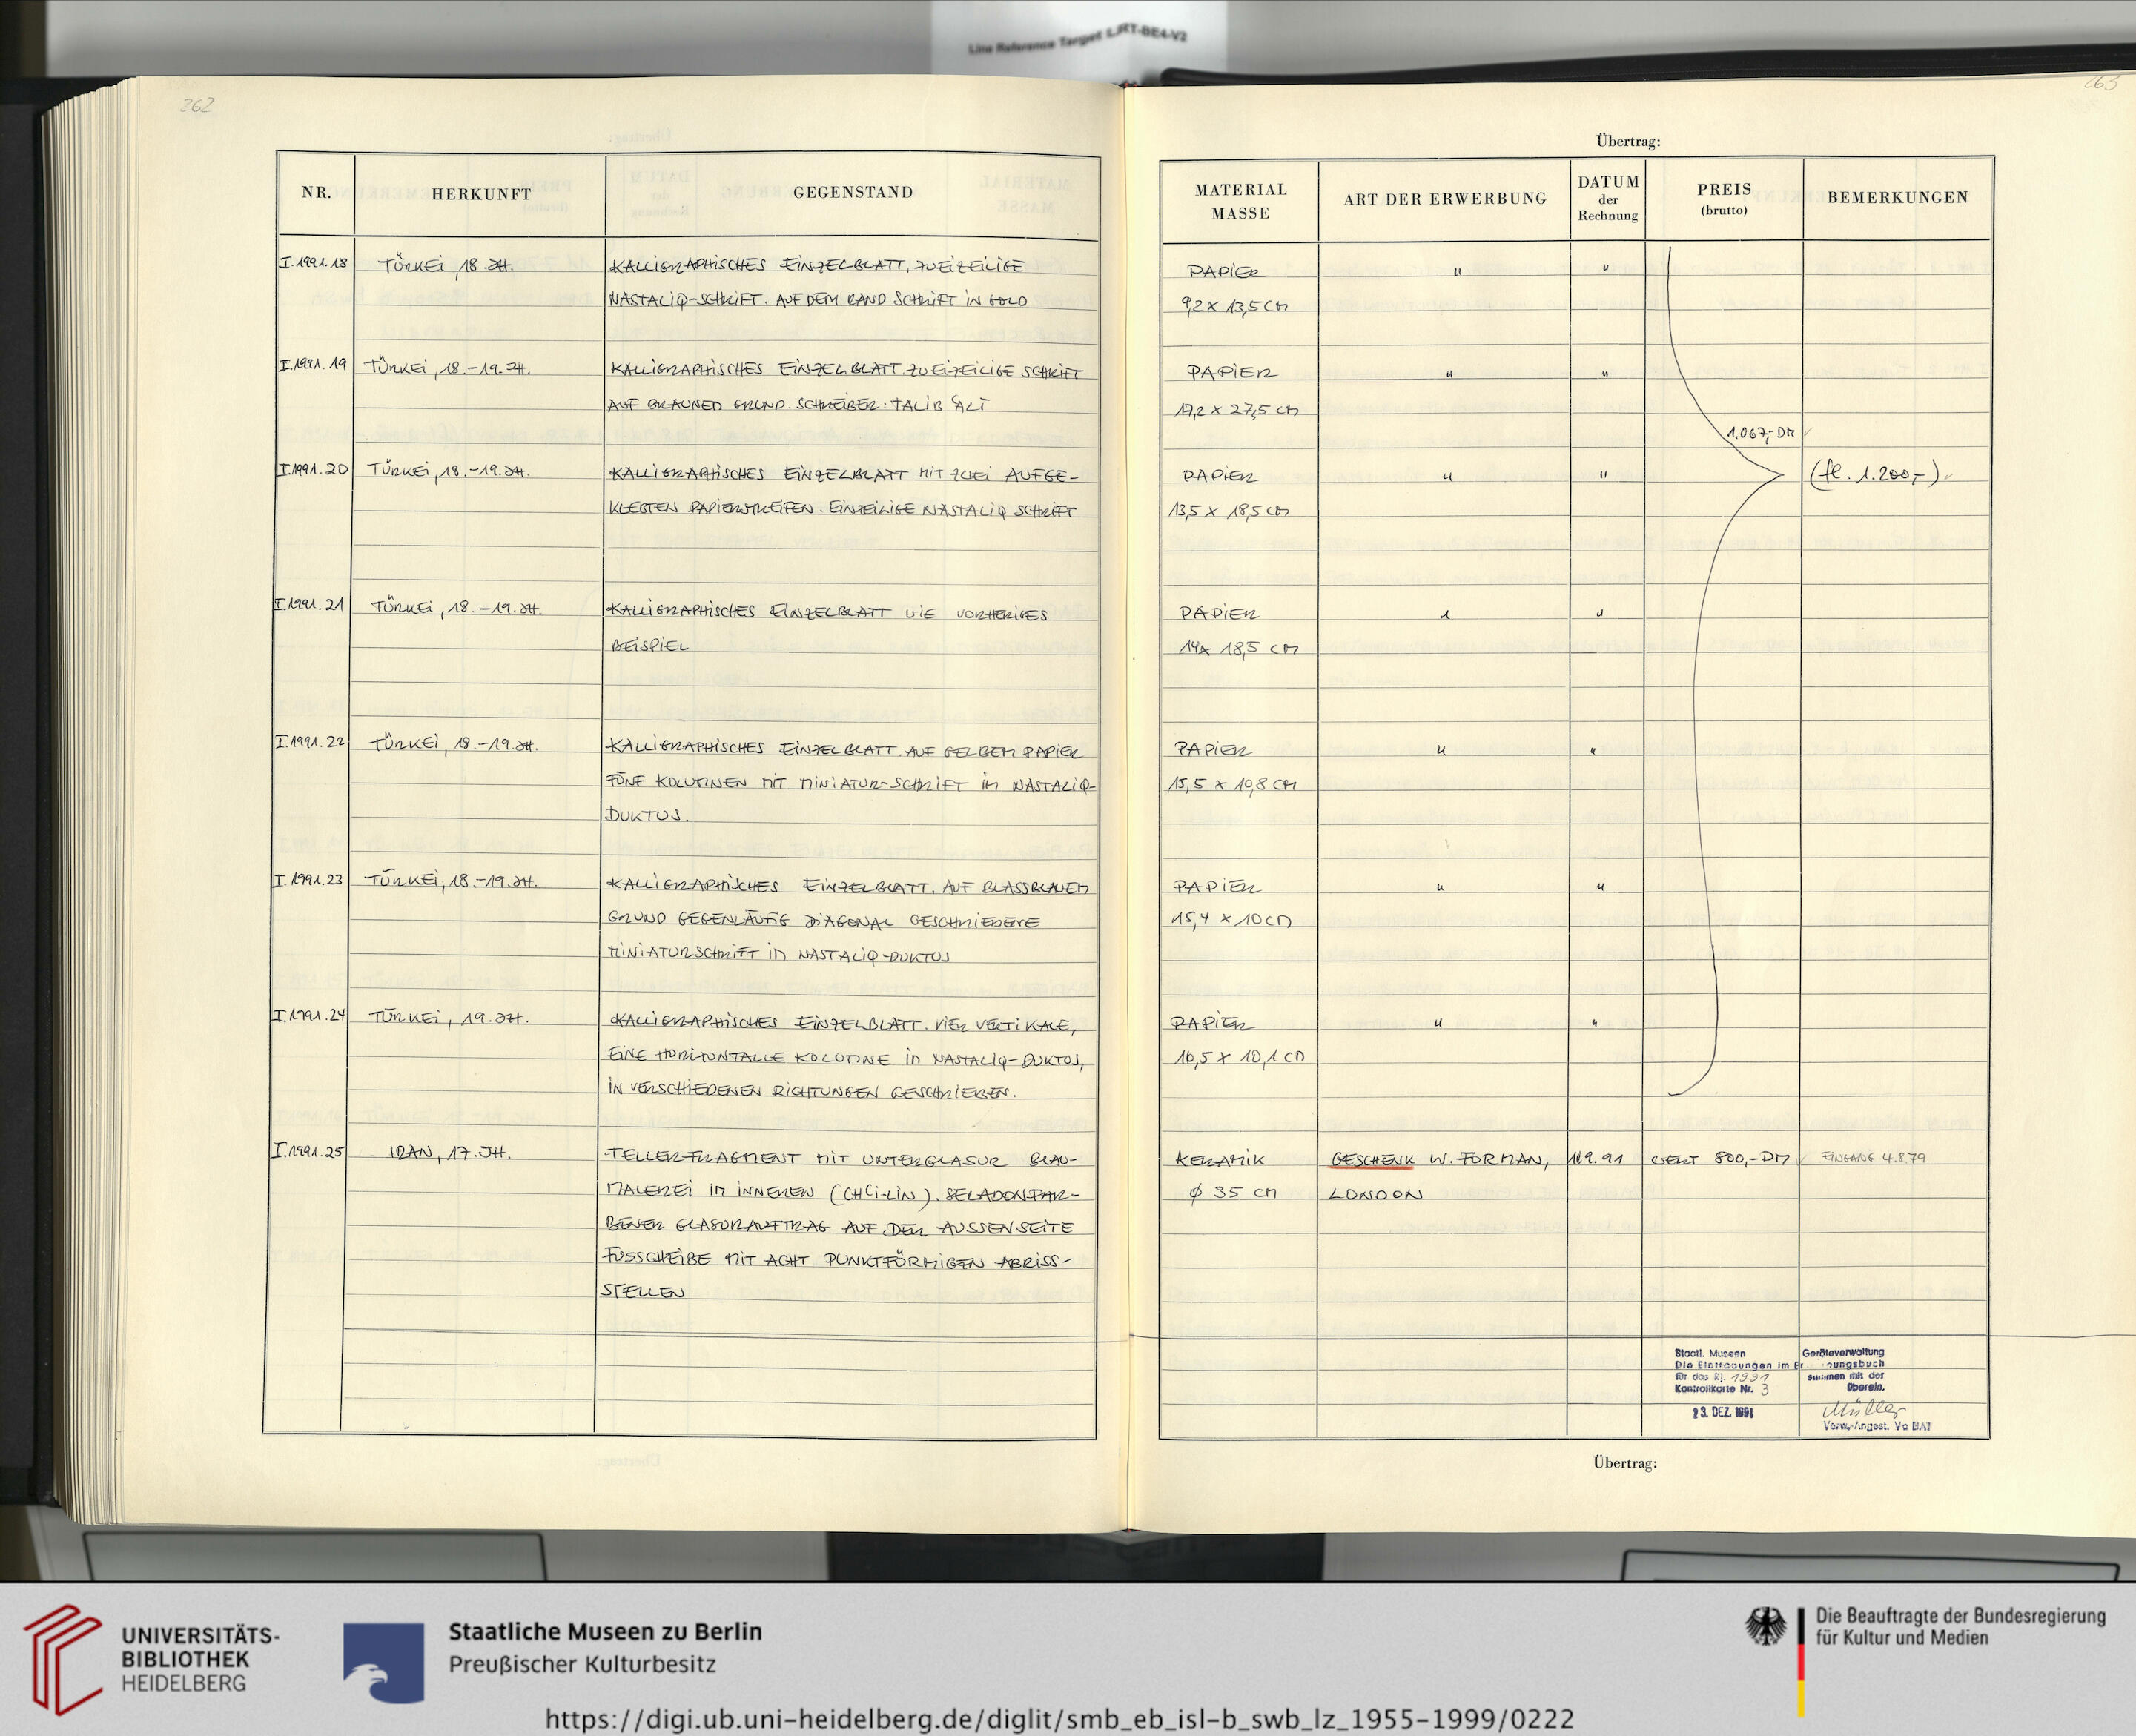 Line Reference Target LJRT-BE4-V2
262
263
Übertrag:
NR.
HERKUNFT
GEGENSTAND
MATERIAL
MASSE
ART DER ERWERBUNG
DATUM
der
Rechnung
PREIS
(brutto)
BEMERKUNGEN
I.1991.18 TÜRKEI, 18.JH. KALLIGRAPHISCHES EINZELBLATT, ZWEIZEILIGE PAPIER " "
NASTALIQ-SCHRIFT. AUF DEM RAND SCHRIFT IN GOLD 9,2 x 13,5 CM
I.1991.19 TÜRKEI, 18.-19.JH. KALLIGRAPHISCHES EINZELBLATT. ZWEIZEILIGE SCHRIFT PAPIER " "
AUF BRAUNEM GRUND. SCHREIBER: TALIB ʿALI 17,2 x 27,5 CM
1.067,- DM
I.1991.20 TÜRKEI, 18.-19.JH. KALLIGRAPHISCHES EINZELBLATT MIT ZWEI AUFGE- PAPIER " " (fl. 1.200,-)
KLEBTEN PAPIERSTREIFEN. EINZEILIGE NASTALIQ SCHRIFT 13,5 x 18,5 CM
I.1991.21 TÜRKEI, 18.-19.JH. KALLIGRAPHISCHES EINZELBLATT WIE VORHERIGES PAPIER " "
BEISPIEL 14 x 18,5 CM
I.1991.22 TÜRKEI, 18.-19.JH. KALLIGRAPHISCHES EINZELBLATT. AUF GELBEM PAPIER PAPIER " "
FÜNF KOLUMNEN MIT MINIATUR-SCHRIFT IM NASTALIQ- 15,5 x 10,8 CM
DUKTUS.
I.1991.23 TÜRKEI, 18.-19.JH. KALLIGRAPHISCHES EINZELBLATT. AUF BLASSBLAUEM PAPIER " "
GRUND GEGENLÄUFIG DIAGONAL GESCHRIEBENE 15,4 x 10 CM
MINIATURSCHRIFT IM NASTALIQ-DUKTUS
I.1991.24 TÜRKEI, 19.JH. KALLIGRAPHISCHES EINZELBLATT. VIER VERTIKALE, PAPIER " "
EINE HORIZONTALLE KOLUMNE IM NASTALIQ-DUKTUS, 16,5 x 10,1 CM
IN VERSCHIEDENEN RICHTUNGEN GESCHRIEBEN.
I.1991.25 IRAN, 17.JH. TELLERFRAGMENT MIT UNTERGLASUR BLAU- KERAMIK GESCHENK W. FORMAN, WERT 800,-DM EINGANG 4.8.79
MALEREI IM INNEREN (CH'I-LIN). SELADONFAR- ϕ 35 CM LONDON
BENER GLASURAUFTRAG AUF DER AUSSENSEITE
FUSSCHEIBE MIT ACHT PUNKTFÖRMIGEN ABRISS-
STELLEN
Staatl. Museen Geräteverwaltung
Die Eintragungen im
für das Rj. 1991 stimmen mit der
Kontrollkarte Nr. 3 überein.
23. DEZ. 1991 Müller
Verw.-Angest. Vc BAT
Übertrag:
UNIVERSITÄTS-
BIBLIOTHEK
HEIDELBERG
Staatliche Museen zu Berlin
Preußischer Kulturbesitz
Die Beauftragte der Bundesregierung
für Kultur und Medien
https://digi.ub.uni-heidelberg.de/diglit/smb_eb_isl-b_swb_lz_1955-1999/0222